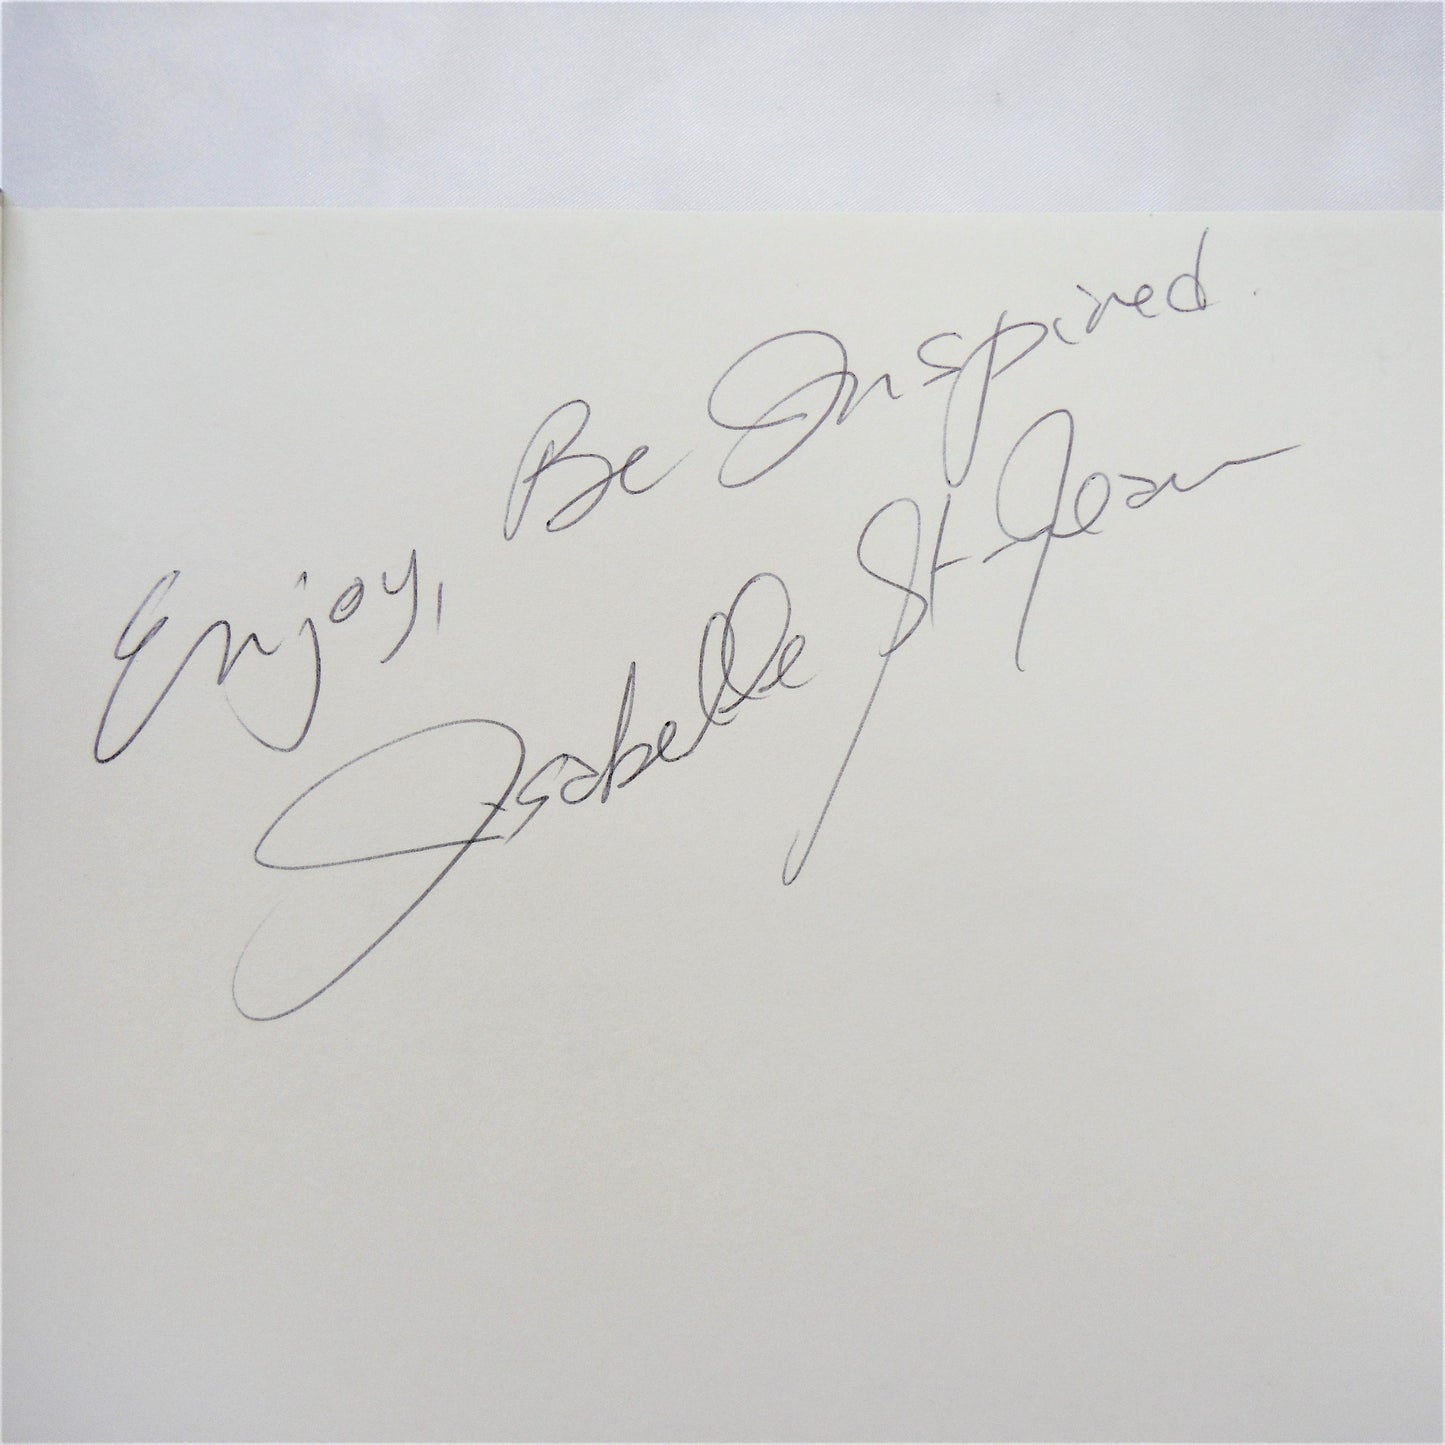 Enjoy, Be Inspired.
Isabelle St-Jean